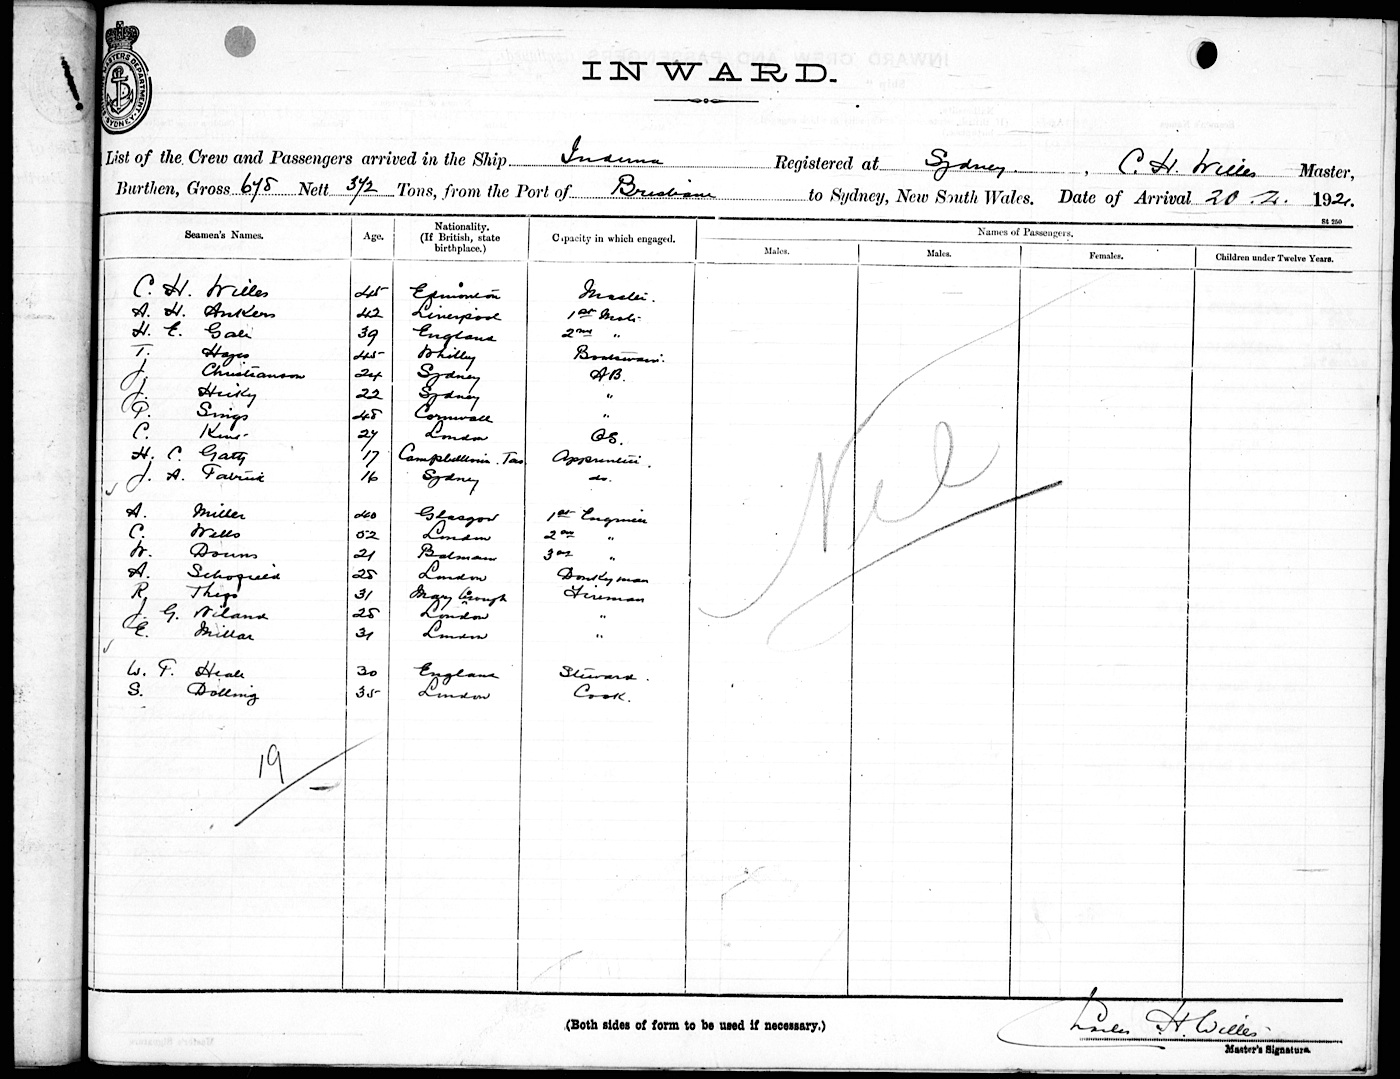 INWARD.
MASTERS DEPARTMENT
SYDNEY
List of the Crew and Passengers arrived in the Ship Registered at Sydney. , C. H. Willes Master,
Burthen, Gross 678 Nett 372 Tons, from the Port of Brisbane to Sydney, New South Wales. Date of Arrival 20.2. 192
St 250
Seamen's Names. Age. Nationality. (If British, state birthplace.) Capacity in which engaged. Names of Passengers.
Males. Males. Females. Children under Twelve Years.
C. H. Willes 45 Edmonton Master.
A. H. Ankers 42 Liverpool 1st Mate
H. E. Gale 39 England 2nd "
T. Hayes 45 Whitby Boatswain.
J. Christianson 24 Sydney AB.
J. 22 Sydney "
P. Sings 48 Cornwall "
C. King 27 London OS.
H. C. Gatty 17 Campbelltown. Tas Apprentice.
J. A. 16 Sydney do.
A. Miller 40 Glasgow 1st Engineer
C. Wells 52 London 2nd "
W. Downs 21 Balmain 3rd "
A. Schofield 25 London Donkyman
R. 31 Mary Brough Fireman
J. G. Niland 25 London "
E. Millar 31 London "
W. F. Heale 30 England Steward.
S. Dolling 35 London Cook.
Nil
19
(Both sides of form to be used if necessary.)
Charles H. Willes
Master's Signature.